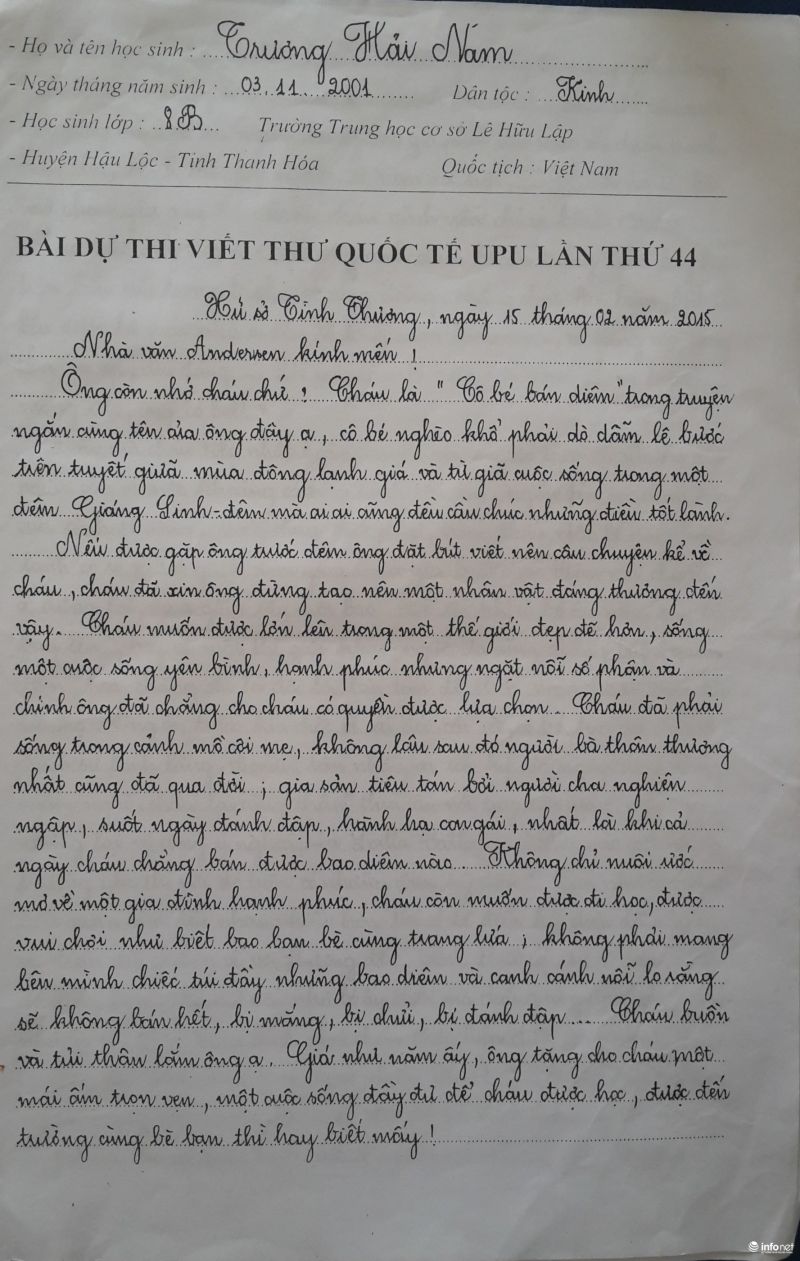 - Họ và tên học sinh : Trương Hải Nam
- Ngày tháng năm sinh : 03.11.2001 Dân tộc : Kinh
- Học sinh lớp : 8B Trường Trung học cơ sở Lê Hữu Lập
- Huyện Hậu Lộc - Tỉnh Thanh Hóa Quốc tịch : Việt Nam
BÀI DỰ THI VIẾT THƯ QUỐC TẾ UPU LẦN THỨ 44
Xứ sở Tình Thương, ngày 15 tháng 02 năm 2015
Nhà văn Andersen kính mến !
Ông còn nhớ cháu chứ ? Cháu là " Cô bé bán diêm" trong truyện
ngắn cùng tên của ông đây ạ, cô bé nghèo khổ phải dò dẫm lê bước
trên tuyết giữa mùa đông lạnh giá và từ giã cuộc sống trong một
đêm Giáng Sinh - đêm mà ai ai cũng đều cầu chúc những điều tốt lành.
Nếu được gặp ông trước đêm ông đặt bút viết nên câu chuyện kể về
cháu, cháu đã xin ông đừng tạo nên một nhân vật đáng thương đến
vậy. Cháu muốn được lớn lên trong một thế giới đẹp đẽ hơn, sống
một cuộc sống yên bình, hạnh phúc nhưng ngặt nỗi số phận và
chính ông đã chẳng cho cháu có quyền được lựa chọn. Cháu đã phải
sống trong cảnh mồ côi mẹ, không lâu sau đó người bà thân thương
nhất cũng đã qua đời ; gia sản tiêu tán bởi người cha nghiện
ngập, suốt ngày đánh đập, hành hạ con gái, nhất là khi cả
ngày cháu chẳng bán được bao diêm nào. Không chỉ nuôi ước
mơ về một gia đình hạnh phúc, cháu còn muốn được đi học, được
vui chơi như biết bao bạn bè cùng trang lứa ; không phải mang
bên mình chiếc túi đầy những bao diêm và canh cánh nỗi lo rằng
sẽ không bán hết, bị mắng, bị chửi, bị đánh đập... Cháu buồn
và tủi thân lắm ông ạ. Giá như năm ấy, ông tặng cho cháu một
mái ấm trọn vẹn, một cuộc sống đầy đủ để cháu được học, được đến
trường cùng bè bạn thì hay biết mấy !
infonet